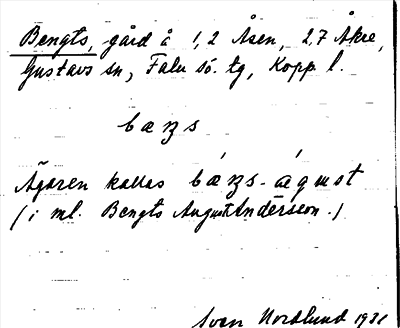 Bengts, gård å 1,2 Åsen, 2,7 Åkre,
Gustavs sn, Falu sö. tg, Kopp l.
bæŋs
Ägaren kallas bæŋs-águst
(i ml. Bengts August Andersson.)
Sven Nordlund 1931